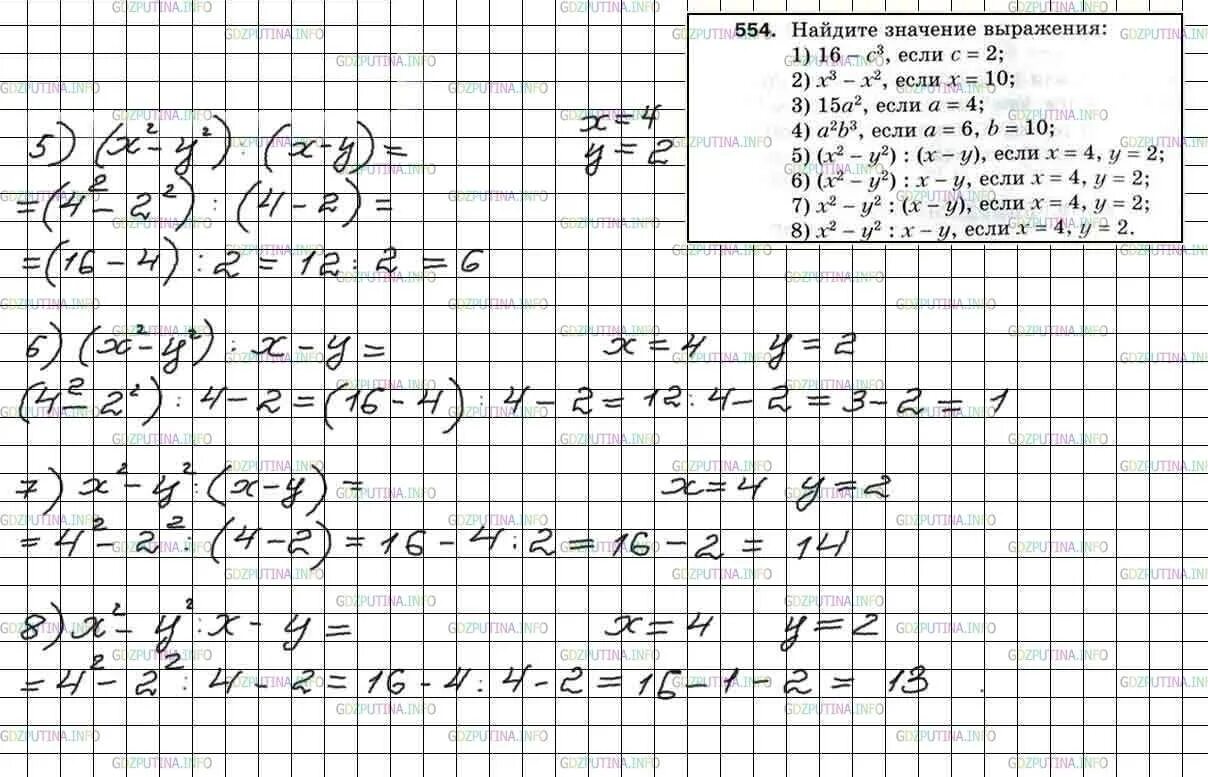 554. Найдите значение выражения:
1) 16 – c³, если c = 2;
2) x³ – x², если x = 10;
3) 15a², если a = 4;
4) a²b³, если a = 6, b = 10;
5) (x² – y²) : (x – y), если x = 4, y = 2;
6) (x² – y²) : x – y, если x = 4, y = 2;
7) x² – y² : (x – y), если x = 4, y = 2;
8) x² – y² : x – y, если x = 4, y = 2.
5) (x² - y²) : (x - y) = x = 4
y = 2
= (4² - 2²) : (4 - 2) =
= (16 - 4) : 2 = 12 : 2 = 6
6) (x² - y²) : x - y = x = 4 y = 2
(4² - 2²) : 4 - 2 = (16 - 4) : 4 - 2 = 12 : 4 - 2 = 3 - 2 = 1
7) x² - y² : (x - y) = x = 4 y = 2
= 4² - 2² : (4 - 2) = 16 - 4 : 2 = 16 - 2 = 14
8) x² - y² : x - y = x = 4 y = 2
= 4² - 2² : 4 - 2 = 16 - 4 : 4 - 2 = 16 - 1 - 2 = 13 .
GDZPUTINA.INFO